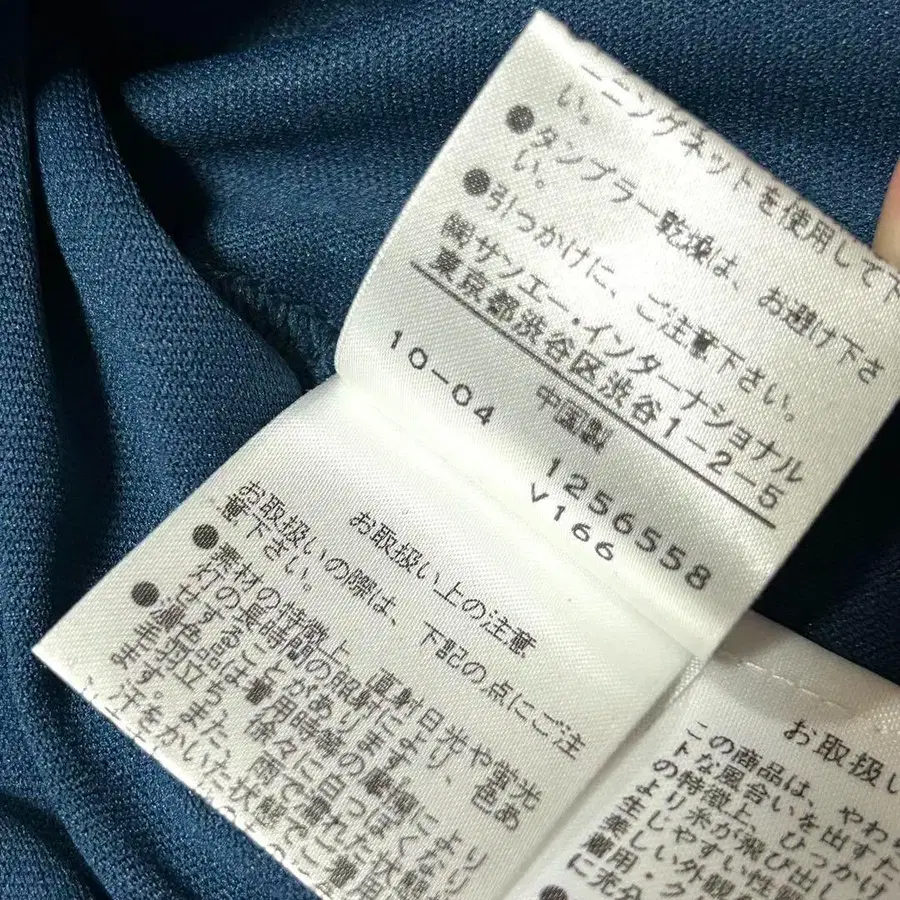 ニングネットを使用して下
い。
●タンブラー乾燥は、お避け下さ
い。
●引つかけに、ご注意下さい。
㈱サンエー・インターナショナル
東京都渋谷区渋谷1-2-5
中国製
10-04
1256558
V166
お取扱い上の注意
お取扱いの際は、下記の点にご注
意下さい。
●素材の特徴上、直射日光や蛍光
灯の長時間の照射により、色あ
せすることがあります。
●濃色品は着用時の摩擦により
毛羽立ち、徐々に白っぽくなり
ます。また、雨で濡れた状態
汗をかいた状態で
お取扱い
この商品は、やわら
トな風合いを出すた
の特徴上、ひっかけ
より糸が飛び出し
生じやすい性質
美しい外観
着用・ク
に充分